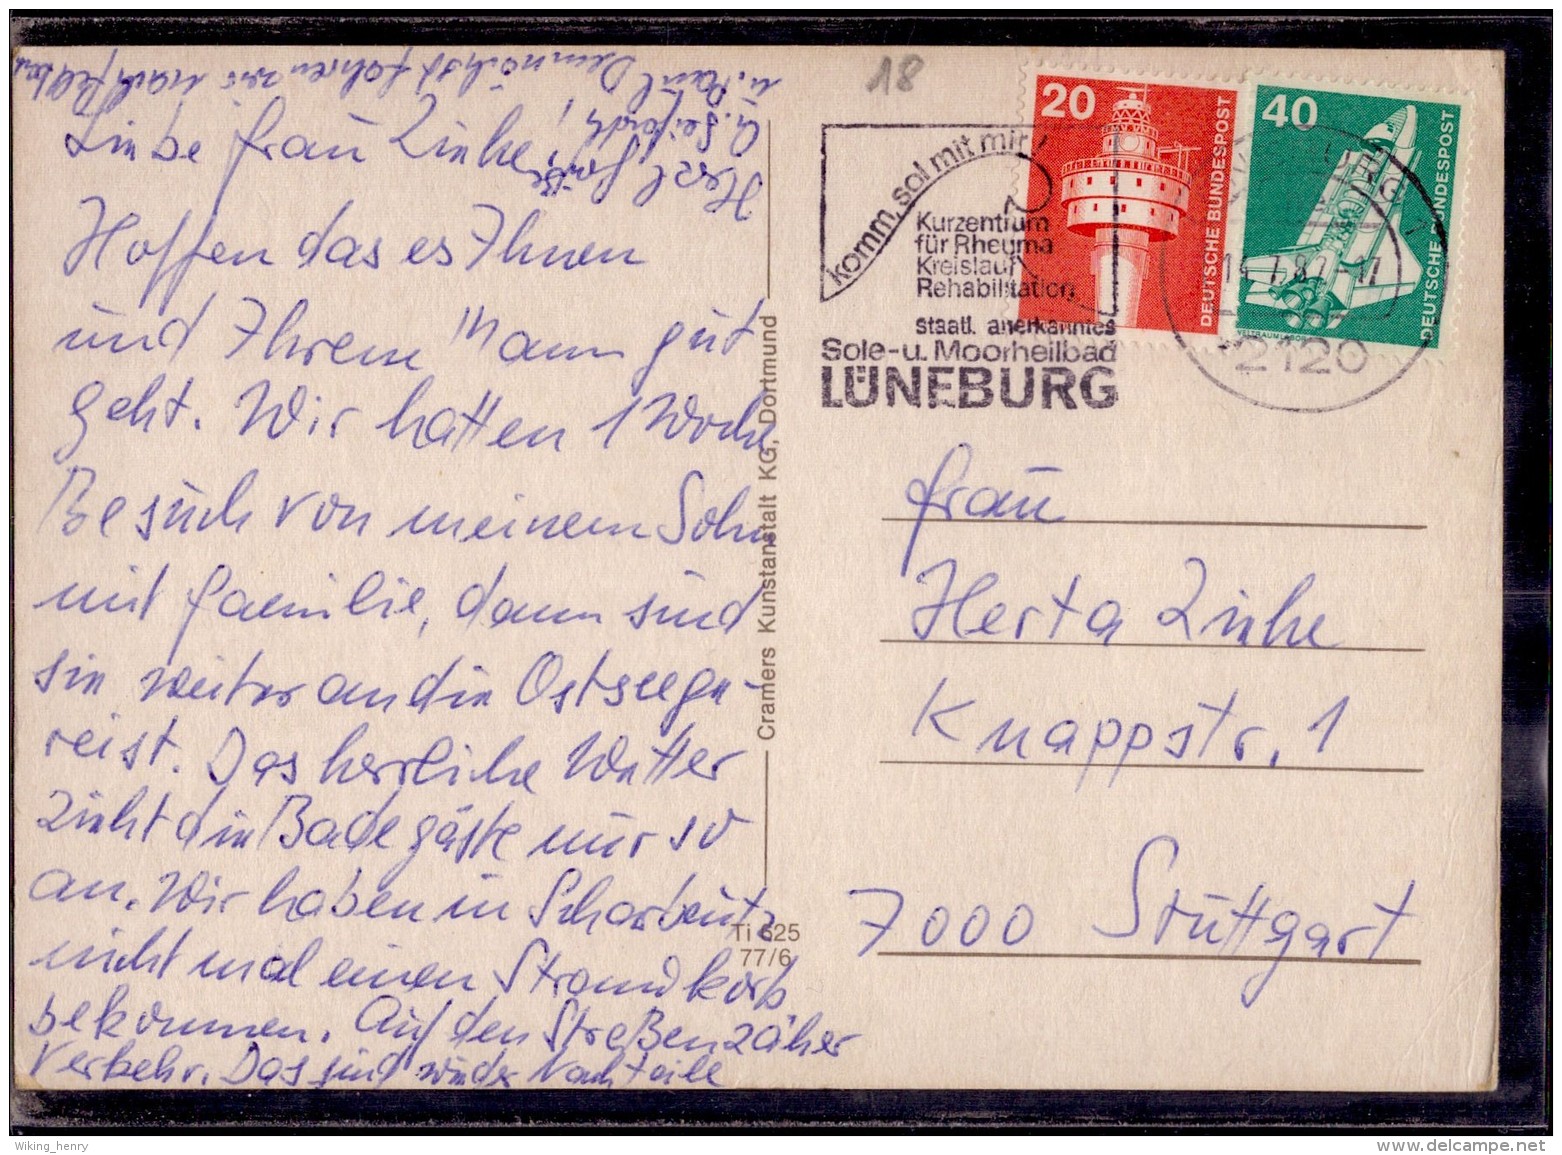 Liebe Frau Zinke,
Hoffen das es Ihnen
und Ihrem Mann gut
geht. Wir hatten 1 Woche
Besuch von meinem Sohn
mit Familie, dann sind
sie weiter an die Ostsee ge-
reist. Das herrliche Wetter
zieht die Badegäste nur so
an. Wir haben in Scharbeutz
nicht mal einen Strandkorb
bekommen. Auf den Straßen zäher
Verkehr. Das sind wieder Nachteile
Herzl. Grüße
u. Paul Demnächst fahren wir nach
Cramers Kunstanstalt KG, Dortmund
Ti 625
77/6
18
komm, sol mit mir
Kurzentrum
für Rheuma
Kreislauf
Rehabilitation
staatl. anerkanntes
Sole-u. Moorheilbad
LÜNEBURG
20
DEUTSCHE BUNDESPOST
40
DEUTSCHE BUNDESPOST
2120
Frau
Herta Zinke
Knappstr. 1
7000 Stuttgart
Wiking_henry
www.delcampe.net